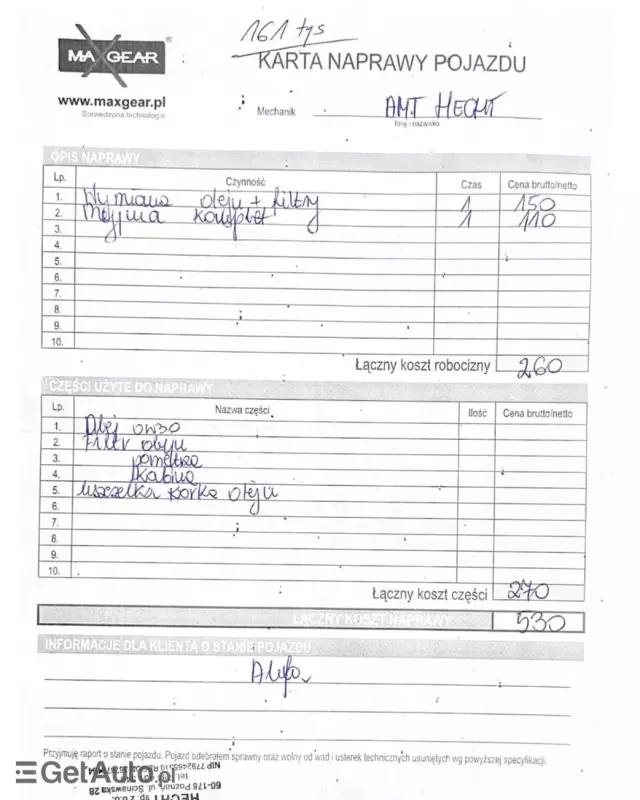 161 tys
MAXGEAR ®
KARTA NAPRAWY POJAZDU
www.maxgear.pl
Sprawdzona technologia
Mechanik AMT HECHT
Imię i nazwisko
OPIS NAPRAWY
Lp. Czynność Czas Cena brutto/netto
1. Wymiana oleju + filtry 1 150
2. Myjnia komplet 1 110
3.
4.
5.
6.
7.
8.
9.
10.
Łączny koszt robocizny 260
CZĘŚCI UŻYTE DO NAPRAWY
Lp. Nazwa części Ilość Cena brutto/netto
1. Olej 0W30
2. Filtr oleju
3. powietrza
4. kabina
5. uszczelka korka oleju
6.
7.
8.
9.
10.
Łączny koszt części 270
ŁĄCZNY KOSZT NAPRAWY 530
INFORMACJE DLA KLIENTA O STANIE POJAZDU
Przyjmuję raport o stanie pojazdu. Pojazd odebrałem sprawny oraz wolny od wad i usterek technicznych usuniętych wg powyższej specyfikacji.
GetAuto.pl
60-178 Poznań, ul. Ścinawska 28
HECHT sp. z o.o.